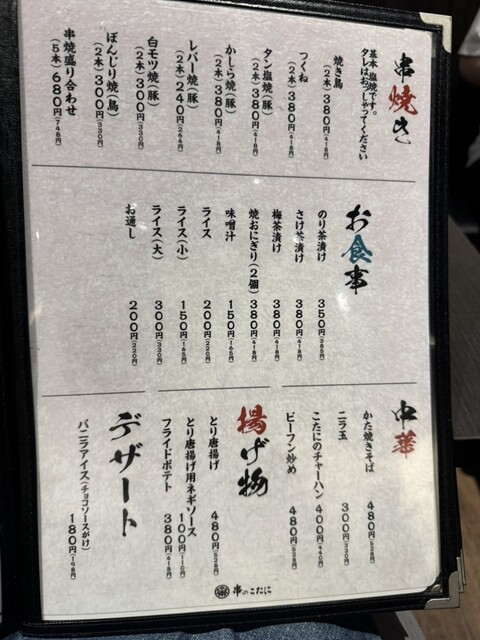 串焼き
基本 塩焼です。
タレはおっしゃってください
焼き鳥
(2本)380円(418円)
つくね
(2本)380円(418円)
タン塩焼(豚)
(2本)380円(418円)
かしら焼(豚)
(2本)380円(418円)
レバー焼(豚)
(2本)240円(264円)
白モツ焼(豚)
(2本)300円(330円)
ぼんじり焼(鳥)
(2本)300円(330円)
串焼盛り合わせ
(5本)680円(748円)
お食事
のり茶漬け 350円(385円)
さけ茶漬け 380円(418円)
梅茶漬け 380円(418円)
焼おにぎり(2個) 380円(418円)
味噌汁 150円(165円)
ライス 200円(220円)
ライス(小) 150円(165円)
ライス(大) 300円(330円)
お通し 200円(220円)
中華
かた焼きそば 480円(528円)
ニラ玉 300円(330円)
こたにのチャーハン 400円(440円)
ビーフン炒め 480円(528円)
揚げ物
とり唐揚げ 480円(528円)
とり唐揚げ用ネギソース 100円(110円)
フライドポテト 380円(418円)
デザート
バニラアイス(チョコソースがけ) 180円(198円)
串のこたに